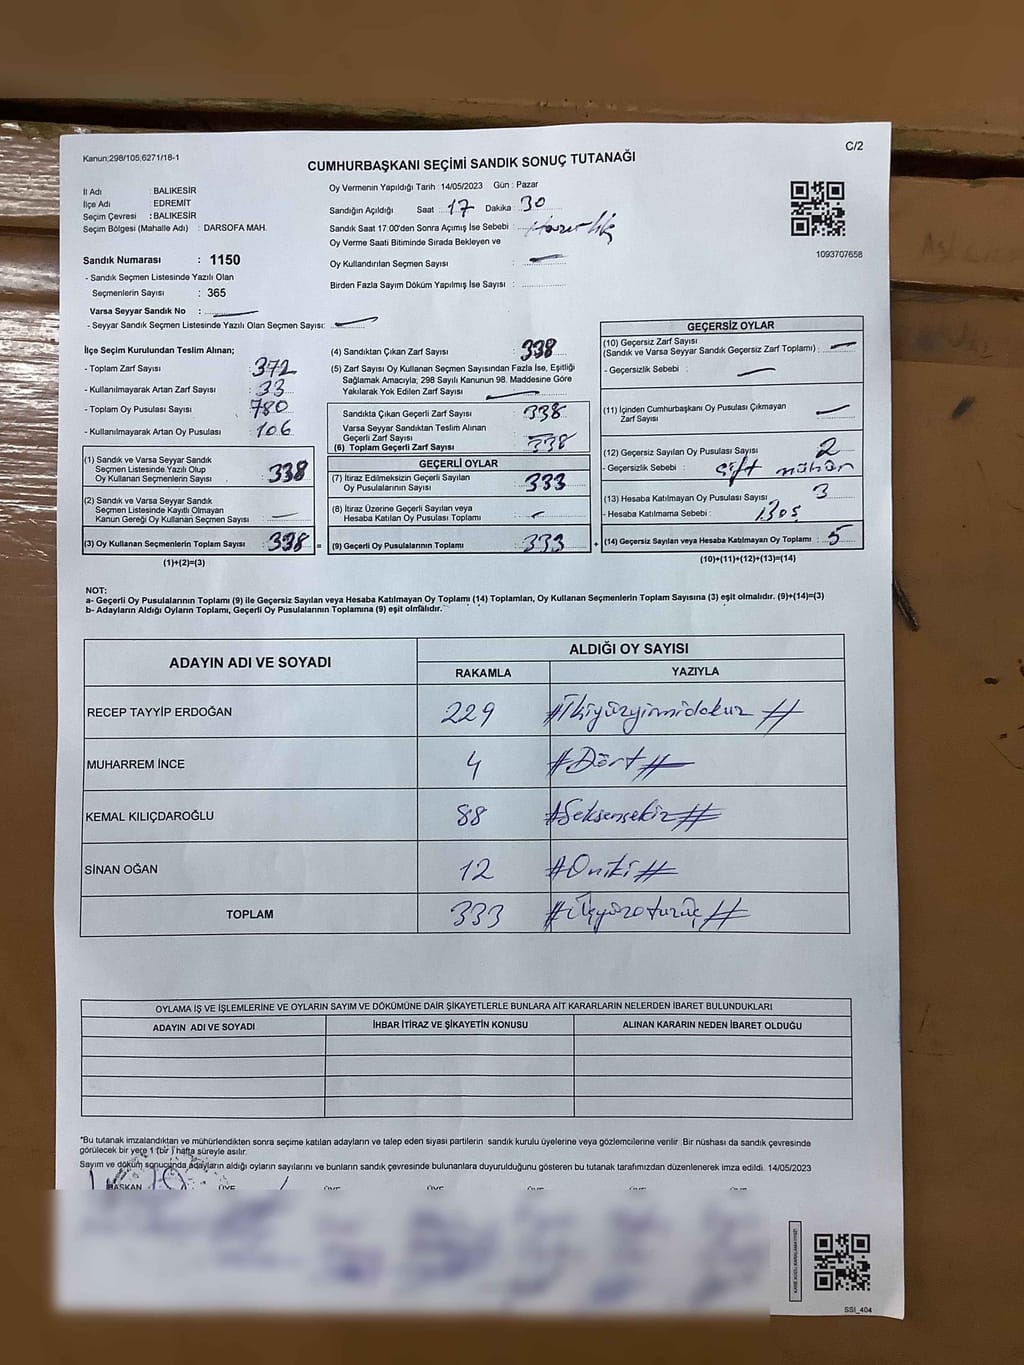 Kanun;298/105;6271/18-1
C/2
CUMHURBAŞKANI SEÇİMİ SANDIK SONUÇ TUTANAĞI
İl Adı : BALIKESİR
İlçe Adı : EDREMİT
Seçim Çevresi : BALIKESİR
Seçim Bölgesi (Mahalle Adı) : DARSOFA MAH.
Sandık Numarası : 1150
- Sandık Seçmen Listesinde Yazılı Olan
Seçmenlerin Sayısı : 365
Varsa Seyyar Sandık No :
- Seyyar Sandık Seçmen Listesinde Yazılı Olan Seçmen Sayısı:
Oy Vermenin Yapıldığı Tarih : 14/05/2023 Gün : Pazar
Sandığın Açıldığı Saat 17 Dakika 30
Sandık Saat 17:00'den Sonra Açımış İse Sebebi : Hazırlık
Oy Verme Saati Bitiminde Sırada Bekleyen ve
Oy Kullandırılan Seçmen Sayısı :
Birden Fazla Sayım Döküm Yapılmış İse Sayısı :
1093707658
İlçe Seçim Kurulundan Teslim Alınan;
- Toplam Zarf Sayısı : 372
- Kullanılmayarak Artan Zarf Sayısı : 33
- Toplam Oy Pusulası Sayısı : 780
- Kullanılmayarak Artan Oy Pusulası : 106
(1) Sandık ve Varsa Seyyar Sandık
Seçmen Listesinde Yazılı Olup
Oy Kullanan Seçmenlerin Sayısı : 338
(2) Sandık ve Varsa Seyyar Sandık
Seçmen Listesinde Kayıtlı Olmayan
Kanun Gereği Oy Kullanan Seçmen Sayısı :
(3) Oy Kullanan Seçmenlerin Toplam Sayısı : 338 =
(1)+(2)=(3)
(4) Sandıktan Çıkan Zarf Sayısı : 338
(5) Zarf Sayısı Oy Kullanan Seçmen Sayısından Fazla İse, Eşitliği
Sağlamak Amacıyla; 298 Sayılı Kanunun 98. Maddesine Göre
Yakılarak Yok Edilen Zarf Sayısı :
Sandıkta Çıkan Geçerli Zarf Sayısı : 338
Varsa Seyyar Sandıktan Teslim Alınan
Geçerli Zarf Sayısı :
(6) Toplam Geçerli Zarf Sayısı : 338
GEÇERLİ OYLAR
(7) İtiraz Edilmeksizin Geçerli Sayılan
Oy Pusulalarının Sayısı : 333
(8) İtiraz Üzerine Geçerli Sayılan veya
Hesaba Katılan Oy Pusulası Toplamı :
(9) Geçerli Oy Pusulalarının Toplamı : 333 +
GEÇERSİZ OYLAR
(10) Geçersiz Zarf Sayısı
(Sandık ve Varsa Seyyar Sandık Geçersiz Zarf Toplamı) :
- Geçersizlik Sebebi :
(11) İçinden Cumhurbaşkanı Oy Pusulası Çıkmayan
Zarf Sayısı :
(12) Geçersiz Sayılan Oy Pusulası Sayısı : 2
- Geçersizlik Sebebi : Çift mühür
(13) Hesaba Katılmayan Oy Pusulası Sayısı : 3
- Hesaba Katılmama Sebebi : Boş
(14) Geçersiz Sayılan veya Hesaba Katılmayan Oy Toplamı : 5
(10)+(11)+(12)+(13)=(14)
NOT:
a- Geçerli Oy Pusulalarının Toplamı (9) ile Geçersiz Sayılan veya Hesaba Katılmayan Oy Toplamı (14) Toplamları, Oy Kullanan Seçmenlerin Toplam Sayısına (3) eşit olmalıdır. (9)+(14)=(3)
b- Adayların Aldığı Oyların Toplamı, Geçerli Oy Pusulalarının Toplamına (9) eşit olmalıdır.
ADAYIN ADI VE SOYADI
ALDIĞI OY SAYISI
RAKAMLA YAZIYLA
RECEP TAYYİP ERDOĞAN 229 #İkiyüzyirmidokuz#
MUHARREM İNCE 4 #Dört#
KEMAL KILIÇDAROĞLU 88 #Seksensekiz#
SİNAN OĞAN 12 #Oniki#
TOPLAM 333 #Üçyüzotuzüç#
OYLAMA İŞ VE İŞLEMLERİNE VE OYLARIN SAYIM VE DÖKÜMÜNE DAİR ŞİKAYETLERLE BUNLARA AİT KARARLARIN NELERDEN İBARET BULUNDUKLARI
ADAYIN ADI VE SOYADI İHBAR İTİRAZ VE ŞİKAYETİN KONUSU ALINAN KARARIN NEDEN İBARET OLDUĞU
*Bu tutanak imzalandıktan ve mühürlendikten sonra seçime katılan adayların ve talep eden siyasi partilerin sandık kurulu üyelerine veya gözlemcilerine verilir. Bir nüshası da sandık çevresinde
görülecek bir yere 1 (bir) hafta süreyle asılır.
Sayım ve döküm sonucunda adayların aldığı oyların sayılarını ve bunların sandık çevresinde bulunanlara duyurulduğunu gösteren bu tutanak tarafımızdan düzenlenerek imza edildi. 14/05/2023
BAŞKAN ÜYE ÜYE ÜYE ÜYE ÜYE ÜYE
SSI_404